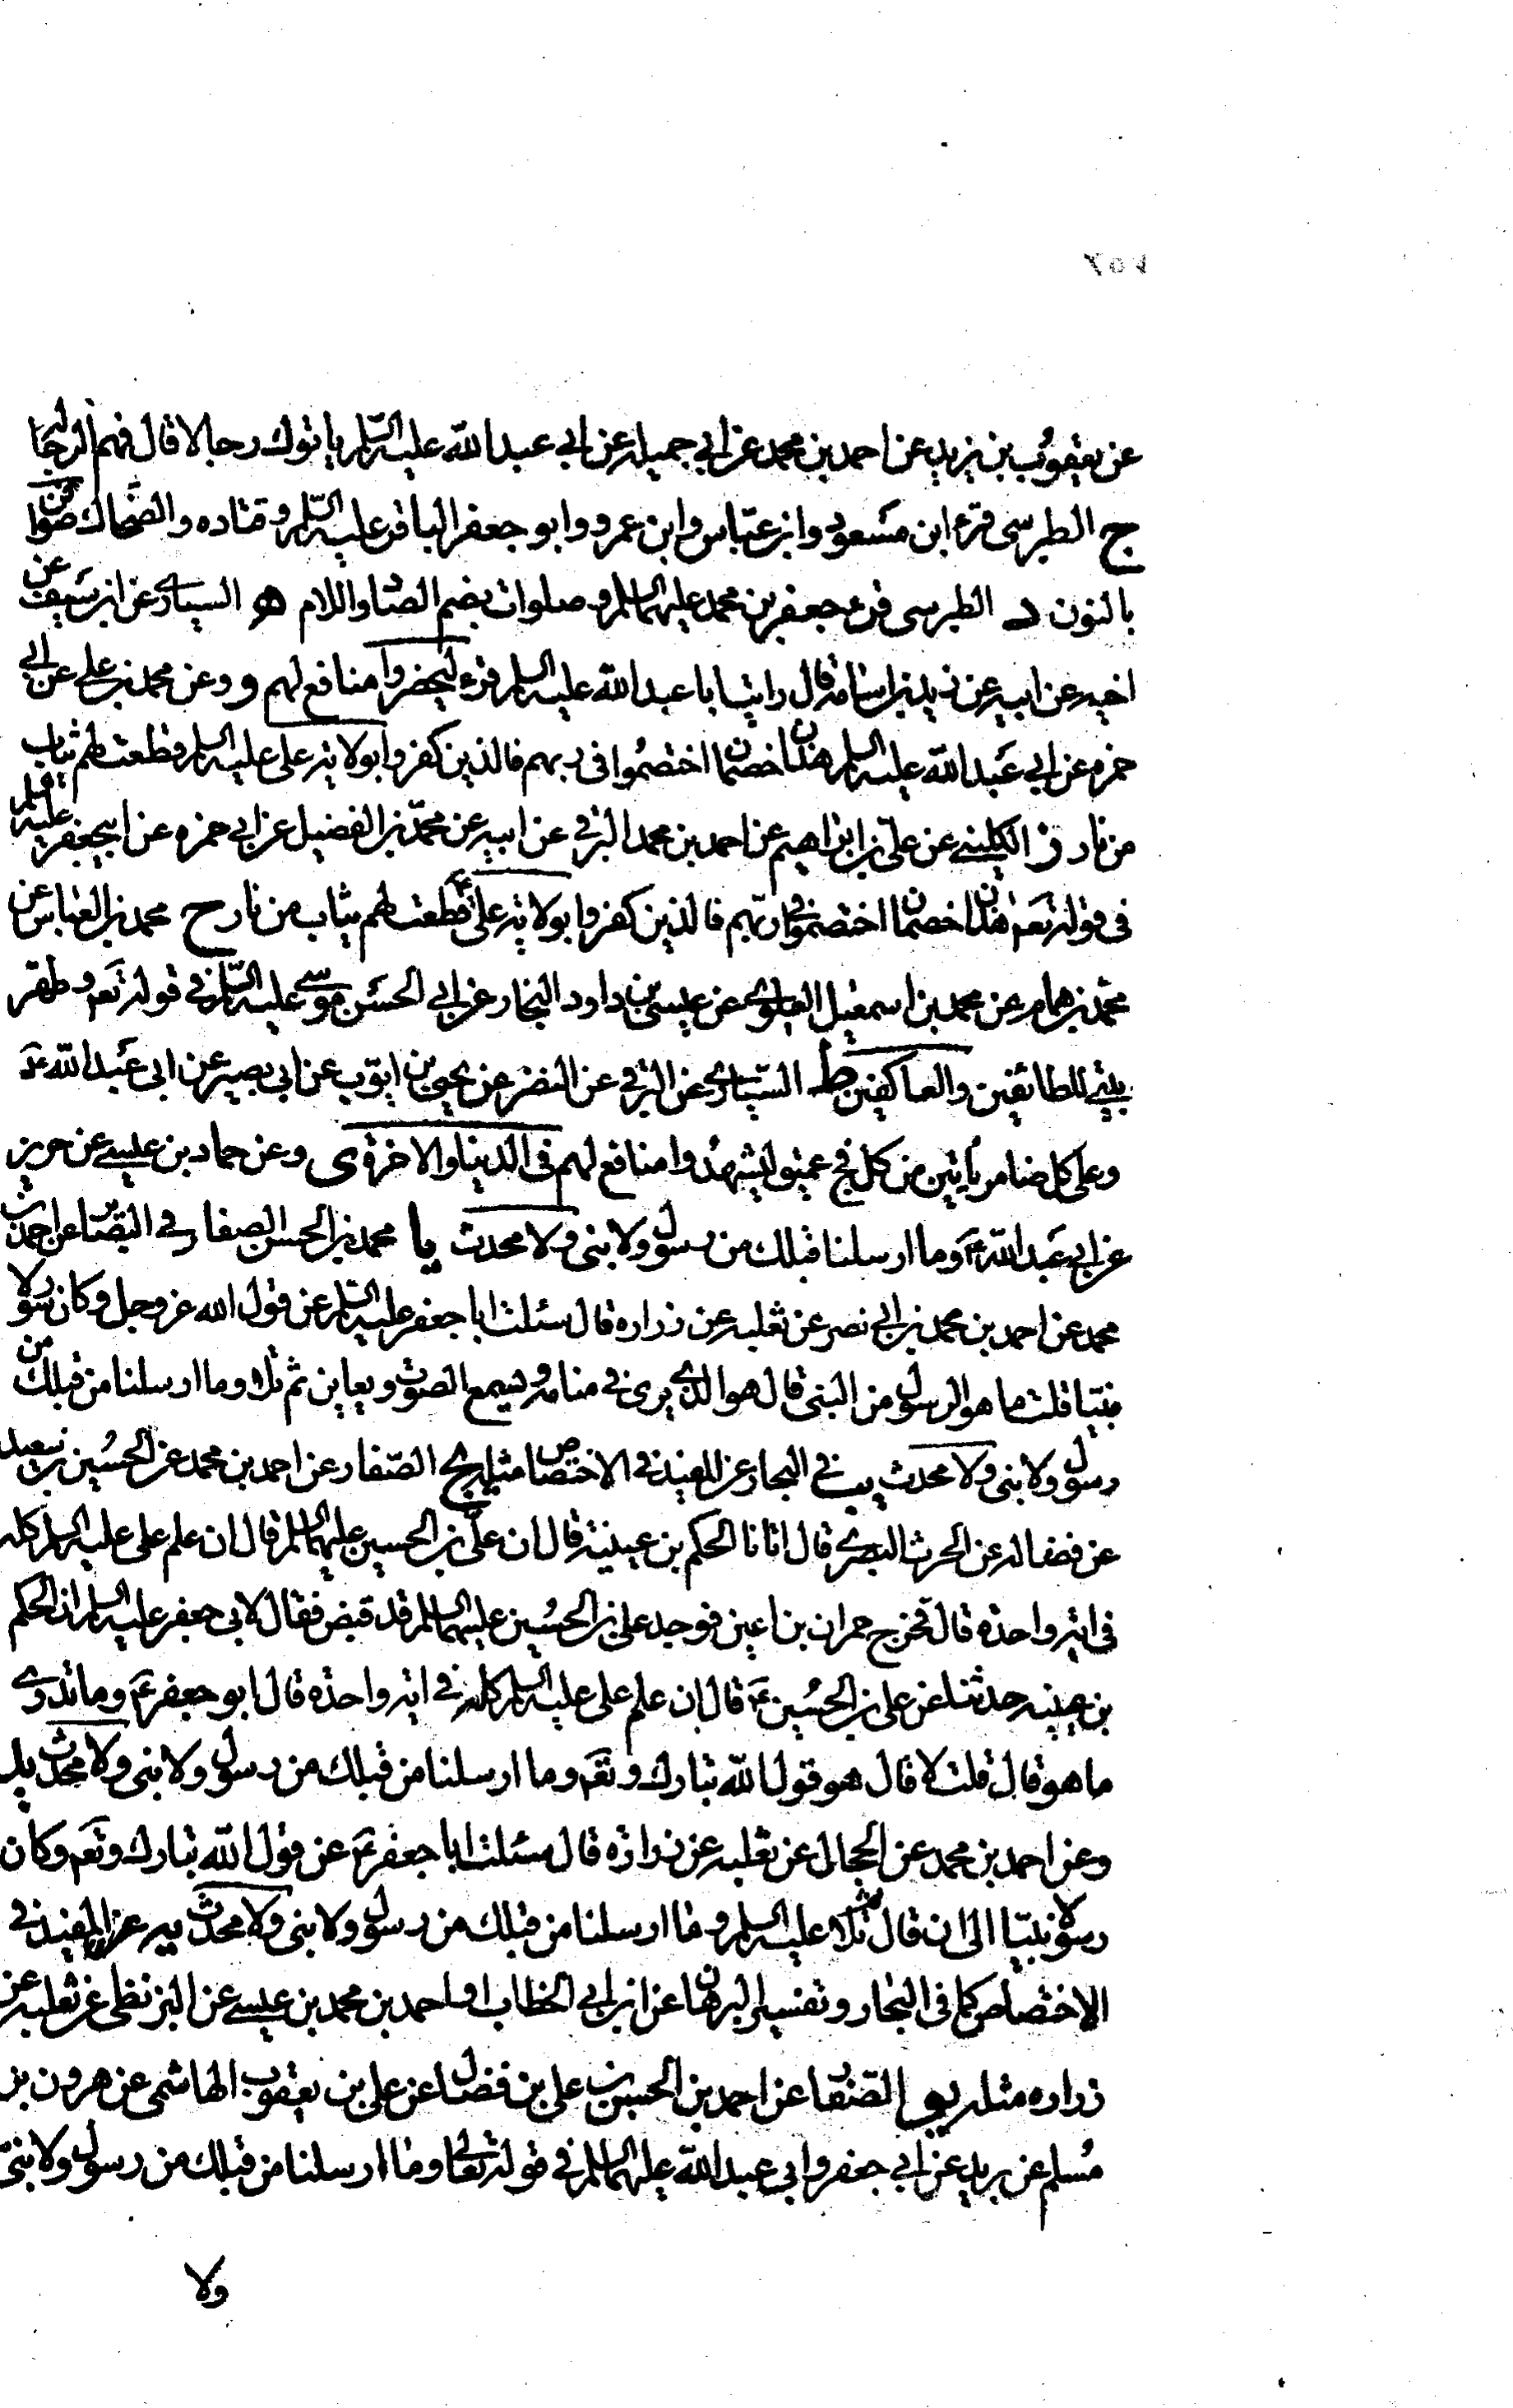 عن يعقوب بن يزيد عن احمد بن محمد عن ابي جميله عن ابي عبد الله عليه السلم ياتوك رجالا قال فهم الرجال
ج الطبرسى قرء ابن مسعود وابن عباس وابن عمرو وابو جعفر الباقر عليه السلم وقتاده والضحاك صوافن
بالنون د الطبرسى قرء جعفر بن محمد عليهما السلم وصلوات بضم الصاد واللام هو السيارى عن ابن سيف عن
اخيه عن ابيه عن زيد بن اسامه قال رايت ابا عبد الله عليه السلم قرء ليحضروا منافع لهم و وعن محمد بن على عن ابي
حمزه عن ابي عبد الله عليه السلم هذان خصمان اختصموا فى ربهم فالذين كفروا بولاية على عليه السلم قطعت لهم ثياب
من نار ز الكليني عن على بن ابراهيم عن احمد بن محمد البرقي عن ابيه عن محمد بن الفضيل عن ابي حمزه عن ابيجعفر عليه السلم
فى قوله تعم هذان خصمان اختصموا فى ربهم فالذين كفروا بولاية على قطعت لهم ثياب من نار ح محمد بن العباس عن
محمد بن همام عن محمد بن اسمعيل العلوى عن عيسى بن داود النجار عن ابي الحسن موسى عليه السلم في قوله تعم وطهر
بيتي للطائفين والعاكفين ط السيارى عن البرقي عن النضر عن يحيى بن ايوب عن ابي بصير عن ابى عبد الله ع
وعلى كل ضامر ياتين من كل فج عميق ليشهدوا منافع لهم فى الدنيا والاخرة ى وعن حماد بن عيسى عن حريز
عن ابي عبد الله ع وما ارسلنا قبلك من رسول ولا نبى ولا محدث يا محمد بن الحسن الصفار في البصائر عن احمد بن
محمد عن احمد بن محمد بن ابي نصر عن ثعلبه عن زراره قال سئلت ابا جعفر عليه السلم عن قول الله عز وجل وكان رسولا
نبيا قلت ما هو الرسول من النبى قال هو الذى يرى في منامه ويسمع الصوت ويعاين ثم تلا وما ارسلنا من قبلك من
رسول ولا نبى ولا محدث يب في البحار عن المفيد في الاختصاص مثله يج الصفار عن احمد بن محمد عن الحسين بن سعيد
عن فضاله عن الحرث البصرى قال اتانا الحكم بن عيينة قال ان على بن الحسين عليهما السلم قال ان علم على عليه السلم كله
فى اية واحدة قال فخرج حمران بن اعين فوجد على بن الحسين عليهما السلم قد قبض فقال لابى جعفر عليه السلم ان الحكم
بن عيينه حدثنا عن على بن الحسين ع قال ان علم على عليه السلم كله في اية واحدة قال ابو جعفر ع وما تدرى
ما هو قال قلت لا قال هو قول الله تبارك وتعم وما ارسلنا من قبلك من رسول ولا نبى ولا محدث يد
وعن احمد بن محمد عن الحجال عن ثعلبه عن زرارة قال سئلت ابا جعفر ع عن قول الله تبارك وتعم وكان
رسولا نبيا الى ان قال ثم تلا عليه السلم وما ارسلنا من قبلك من رسول ولا نبى ولا محدث يه عن المفيد في
الاختصاص كما فى البحار وتفسير البرهان عن ابن ابي الخطاب و احمد بن محمد بن عيسى عن البزنطى عن ثعلبه عن
زراره مثله يو الصفار عن احمد بن الحسن بن على بن فضال عن على بن يعقوب الهاشمى عن هرون بن
مسلم عن بريد عن ابي جعفر وابى عبد الله عليهما السلم في قوله تعالى وما ارسلنا من قبلك من رسول ولا نبى
ولا